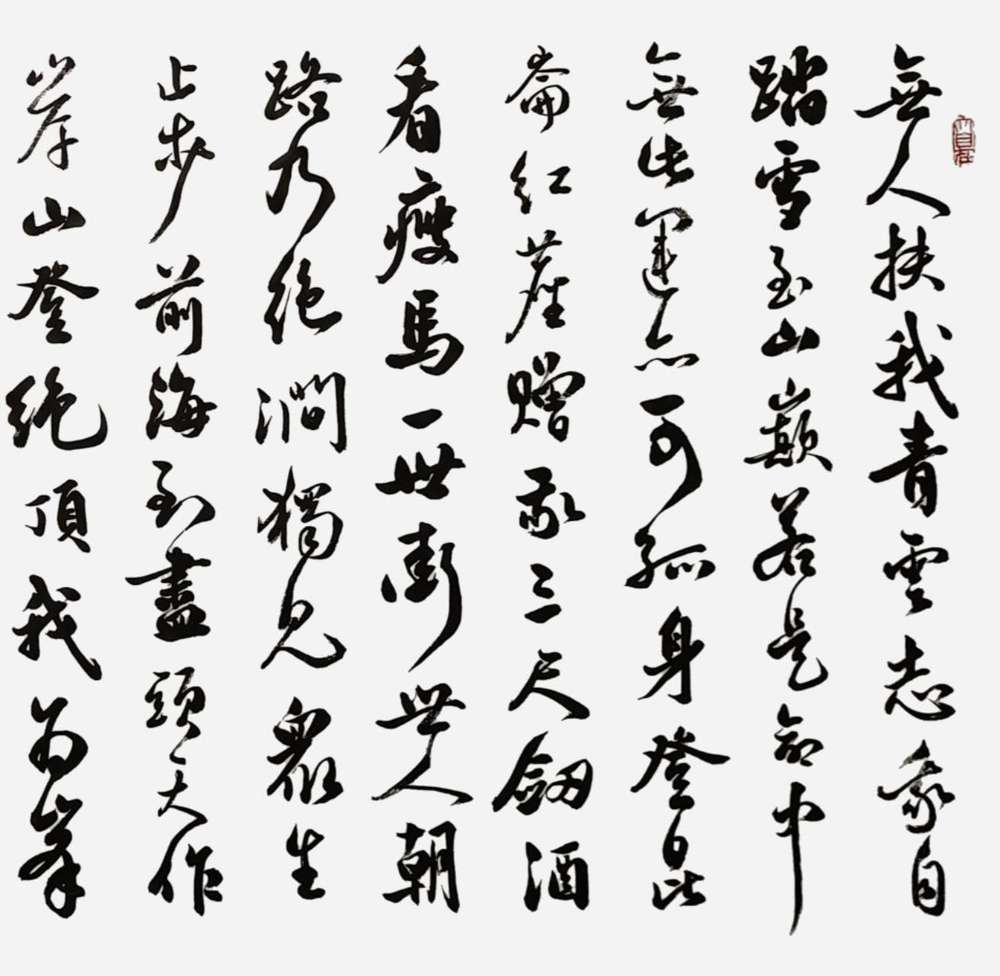 無人扶我青雲志我自
踏雪至山巔若是命中
無此運亦可孤身登昆
崙紅塵贈我三尺劒酒
看瘦馬一世街世人朝
路乃絕澗獨見眾生
止步前海到盡頭天作
岸山登絕頂我為峯